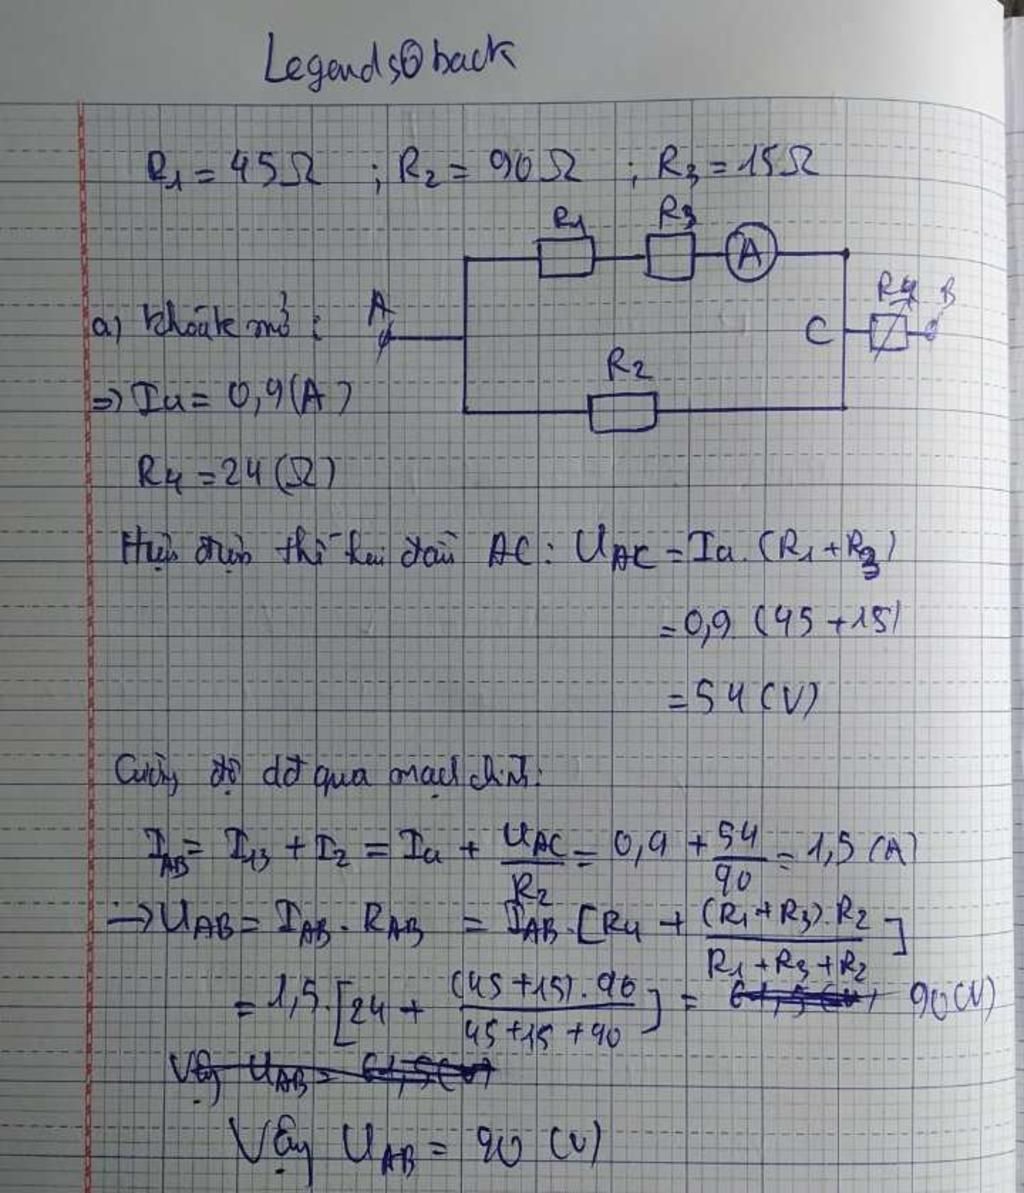 Legends@back
R1 = 45Ω ; R2 = 90Ω ; R3 = 15Ω
R1 R3
A
A
a) khoá k mở :
C
R4 B
R2
=> Ia = 0,9(A)
R4 = 24 (Ω)
Hiệu điện thế hai đầu AC : UAC = Ia . (R1 + R3)
= 0,9 (45 + 15)
= 54 (V)
Cường độ dđ qua mạch chính:
IAB = I13 + I2 = Ia + UAC/R2 = 0,9 + 54/90 = 1,5 (A)
-> UAB = IAB . RAB = IAB . [R4 + (R1 + R3) . R2 / R1 + R3 + R2]
= 1,5 . [24 + (45 + 15) . 90 / 45 + 15 + 90] = 61,5 (V) 90 (V)
Vậy UAB = 61,5 (V)
Vậy UAB = 90 (V)